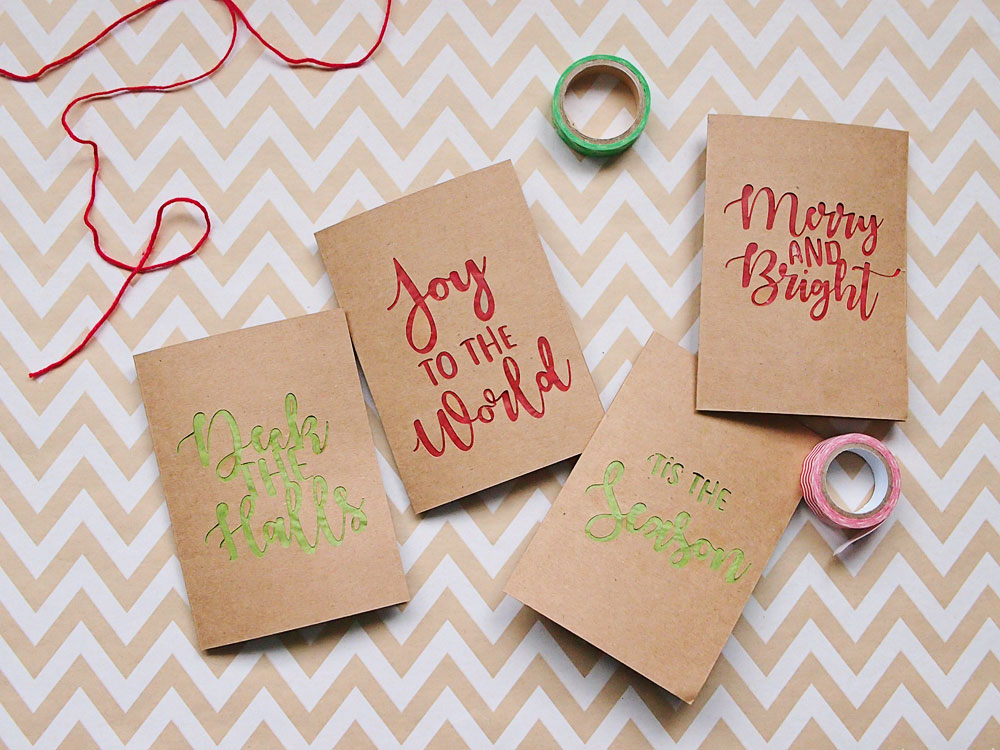 Deck
THE
Halls
Joy
TO THE
World
'TIS THE
Season
Merry
AND
Bright